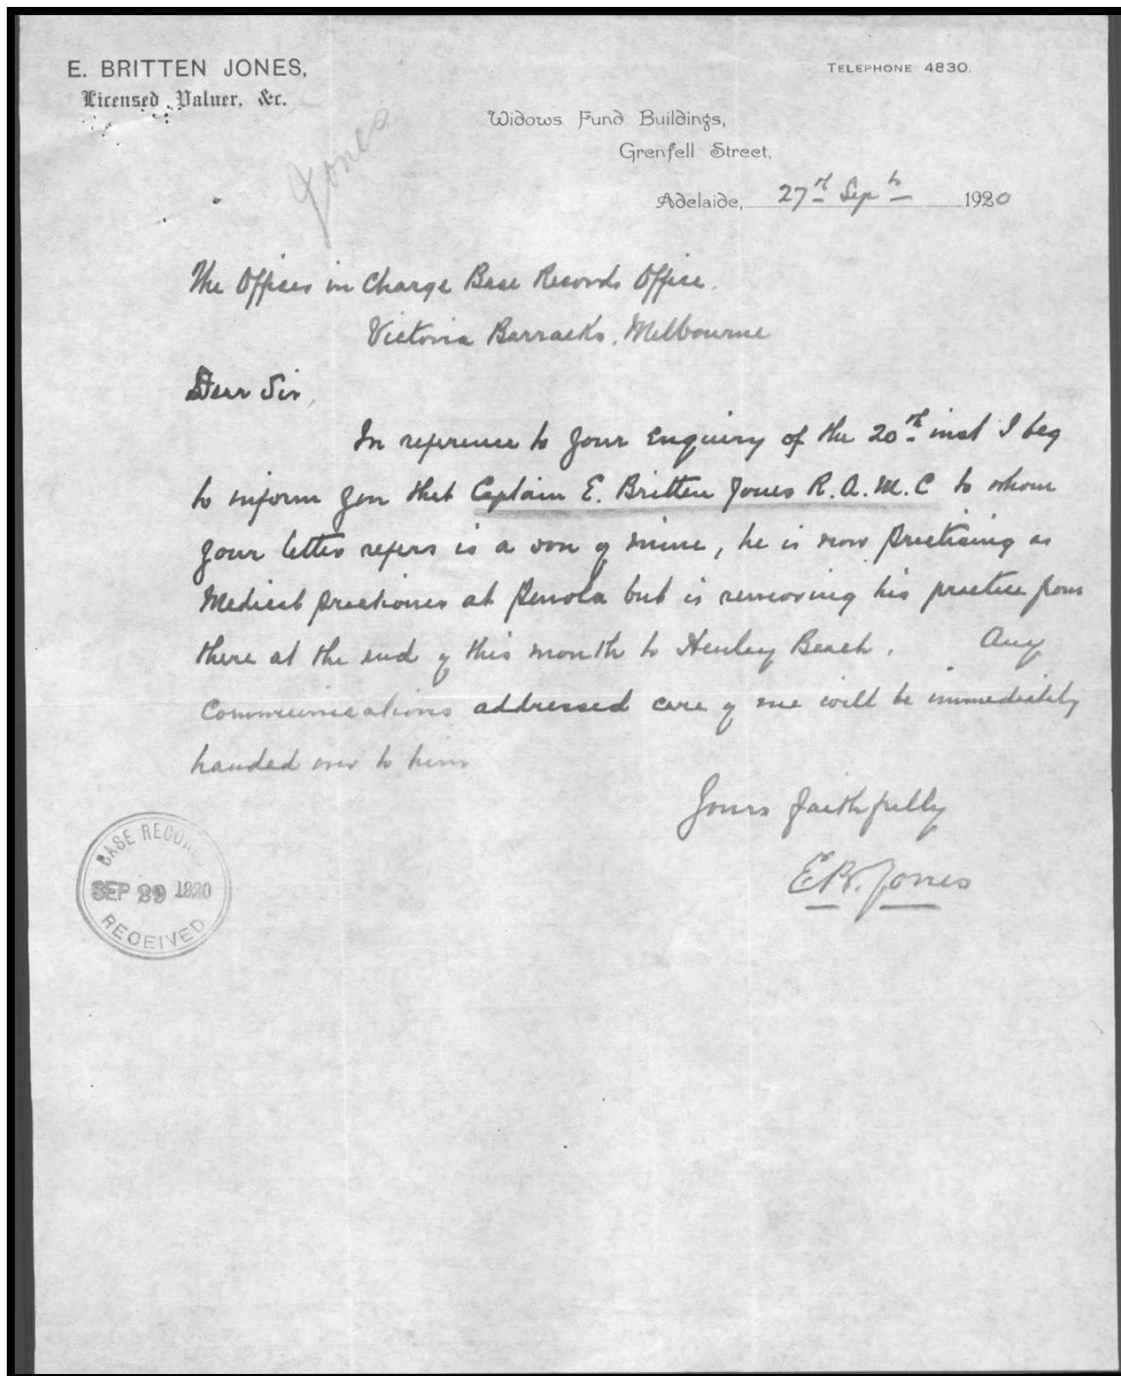 E. BRITTEN JONES,
Licensed Valuer, &c.
TELEPHONE 4830.
Jones
Widows Fund Buildings,
Grenfell Street,
Adelaide, 27th Sept 1920
The Officer in Charge Base Records Office.
Victoria Barracks, Melbourne
Dear Sir,
In reference to your Enquiry of the 20th inst I beg
to inform you that Captain E. Britten Jones R.A.M.C to whom
your letter refers is a son of mine, he is now practising as
Medical practioner at Penola but is removing his practice from
there at the end of this month to Henley Beach. Any
Communications addressed care of me will be immediately
handed over to him
Yours faithfully
E.B. Jones
BASE RECORDS
SEP 29 1920
RECEIVED